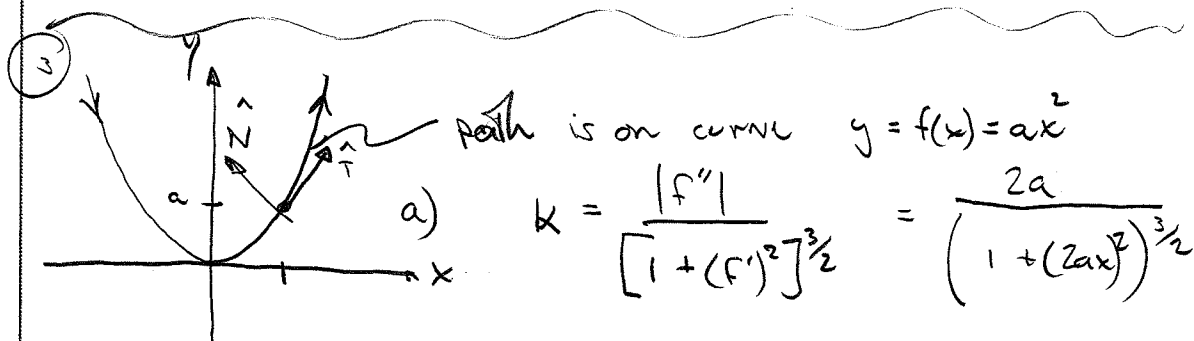 3
y
N̂
T̂
path is on curve y = f(x) = ax²
a
a) K = |f''| / [1 + (f')²]^{3/2} = 2a / (1 + (2ax)²)^{3/2}
x